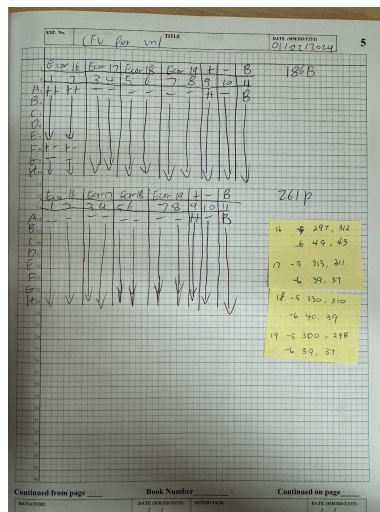 EXP. No.
TITLE
DATE (MM/DD/YYYY)
5
CFU per ml
01/02/2024
Ecor 16 Ecor 17 Ecor 18 Ecor 19 + - B
186B
1 2 3 4 5 6 7 8 9 10 11
A. ++ ++ -- -- -- -- H - B
B.
C.
D.
E.
F. +- +-
G. - -
H.
Ecor 16 Ecor 17 Ecor 18 Ecor 19 + - B
261P
1 2 3 4 5 6 7 8 9 10 11
A. -- -- -- -- -- -- -- -- H - B
B.
C.
D.
E.
F.
G.
H.
16 -5 297, 312
-6 49, 45
17 -5 313, 311
-6 39, 37
18 -5 330, 310
-6 40, 39
19 -5 300, 298
-6 39, 37
Continued from page
Book Number
Continued on page
SIGNATURE
DATE (MM/DD/YYYY)
SUPERVISOR
DATE (MM/DD/YYYY)